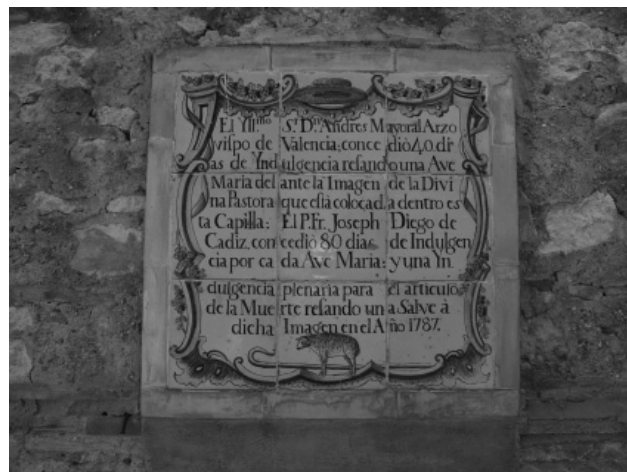 El Yll.mo S.r D.n Andres Mayoral Arzo
vispo de Valencia; concediò 40. di
as de Yndulgencia resando una Ave
Maria del ante la Imagen de la Divi
na Pastora que està colocada dentro es
ta Capilla: El P. Fr. Joseph Diego de
Cadiz, concediò 80 dias de Indulgen
cia por cada Ave Maria: y una Yn
dulgencia plenaria para el articulo
de la Muerte resando una Salve à
dicha Imagen en el Año 1787.